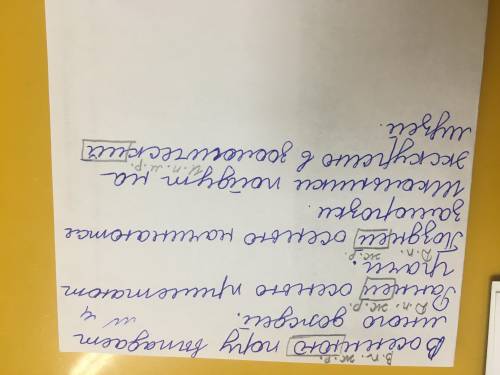 В.п. ж.р.
В осеннюю пору выпадает
много дождей.
Д.п. ж.р.
Ранней осенью прилетают
грачи.
Д.п. ж.р.
Поздней осенью начинаются
заморозки.
Школьники пойдут на
И.п. м.р.
экскурсию в зоологический
музей.